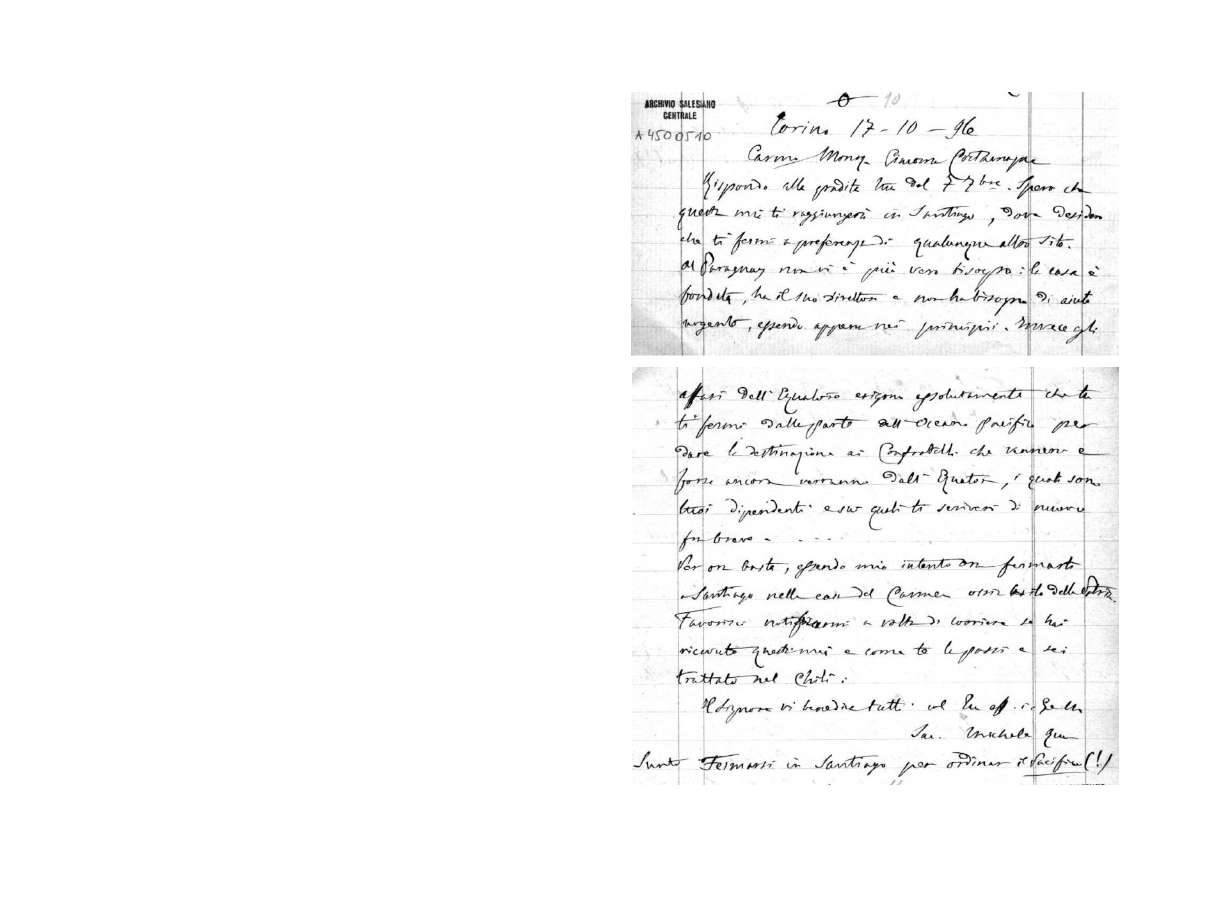 ARCHIVIO SALESIANO
CENTRALE
A4500510
10
Torino 17-10-96
Carmo Monsr
Rispondo alla gradita tua del 7 7bre. Spero che
questa mia ti raggiungerà in Santiago, dove desidero
che ti fermi a preferenza di qualunque altro sito.
Al Paraguay non vi è più vero bisogno: la casa è
fondata, ha il suo direttore e non ha bisogno di aiuto
urgente, essendo appena nei principii. Invece gli
affari dell'Equatore esigono assolutamente che tu
ti fermi dalla parte dell'Oceano Pacifico per
dare la destinazione ai Confratelli che vennero e
forse ancora verranno dall'Equatore, i quali sono
tuoi dipendenti e sui quali ti scriverò di nuovo
fra breve - . . . .
Per ora basta, essendo mio intento ora fermarti
a Santiago nella casa del Carmen ossia della
Favorisci notificarmi a volta di corriere se hai
ricevuto questa mia e come te la passi e sei
trattato nel Chilì.
Il Signore vi benedica tutti col tuo aff. in G. e M.
Sac. Michele Rua
Sunto Fermarsi in Santiago per ordinar il Pacifico (!)